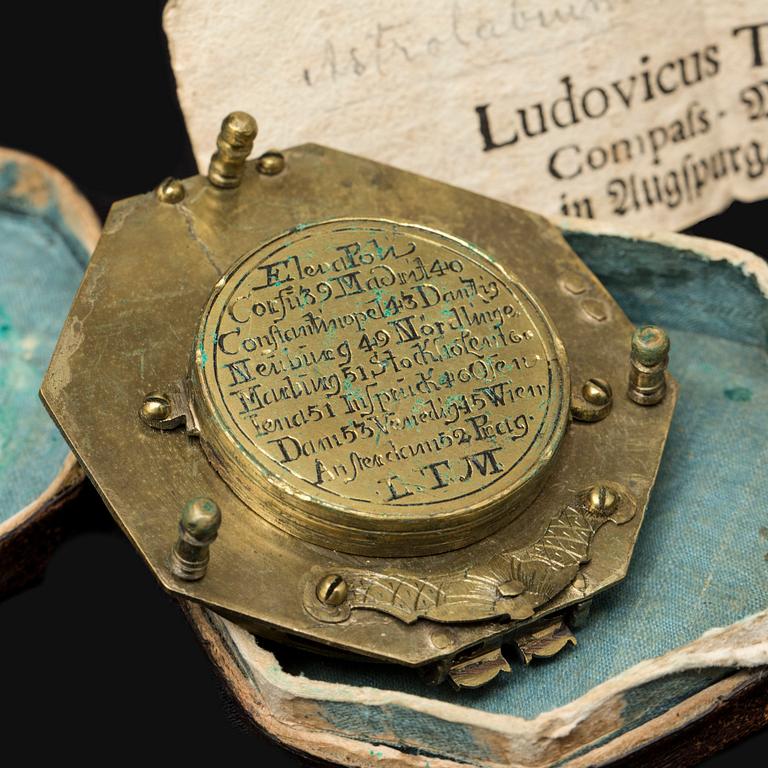 Astrolabium
Ludovicus T
Compaſs-
in Augſpurg.
Eleva Poli
Corfu 39 Madrit 40
Conſtantinopel 43 Dantzig
Neuburg 49 Nördlinge
Marburg 51 Stockholm
Iena 51 Inſpruck 46 Ofen
Dam 53 Venedig 45 Wien
Amſterdam 52 Prag.
L T M